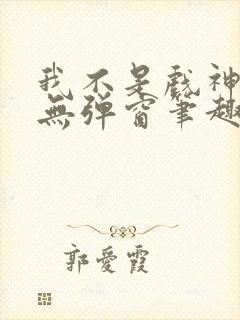 我不是戲神
無彈窗筆趣
郭愛霞